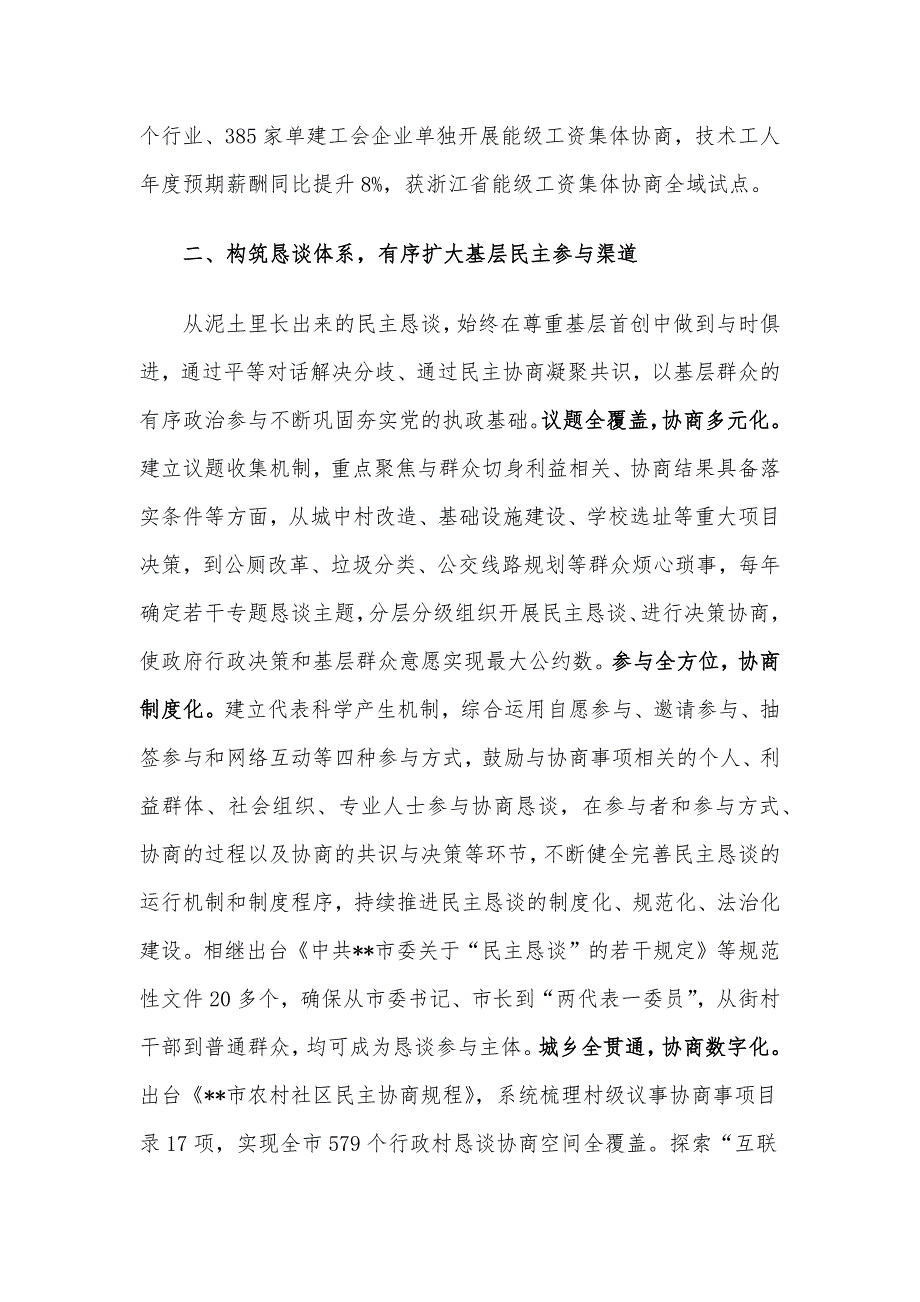 个行业、385 家单建工会企业单独开展能级工资集体协商，技术工人
年度预期薪酬同比提升 8%，获浙江省能级工资集体协商全域试点。
二、构筑恳谈体系，有序扩大基层民主参与渠道
从泥土里长出来的民主恳谈，始终在尊重基层首创中做到与时俱
进，通过平等对话解决分歧、通过民主协商凝聚共识，以基层群众的
有序政治参与不断巩固夯实党的执政基础。议题全覆盖，协商多元化。
建立议题收集机制，重点聚焦与群众切身利益相关、协商结果具备落
实条件等方面，从城中村改造、基础设施建设、学校选址等重大项目
决策，到公厕改革、垃圾分类、公交线路规划等群众烦心琐事，每年
确定若干专题恳谈主题，分层分级组织开展民主恳谈、进行决策协商，
使政府行政决策和基层群众意愿实现最大公约数。参与全方位，协商
制度化。建立代表科学产生机制，综合运用自愿参与、邀请参与、抽
签参与和网络互动等四种参与方式，鼓励与协商事项相关的个人、利
益群体、社会组织、专业人士参与协商恳谈，在参与者和参与方式、
协商的过程以及协商的共识与决策等环节，不断健全完善民主恳谈的
运行机制和制度程序，持续推进民主恳谈的制度化、规范化、法治化
建设。相继出台《中共**市委关于“民主恳谈”的若干规定》等规范
性文件 20 多个，确保从市委书记、市长到“两代表一委员”，从街村
干部到普通群众，均可成为恳谈参与主体。城乡全贯通，协商数字化。
出台《**市农村社区民主协商规程》，系统梳理村级议事协商事项目
录 17 项，实现全市 579 个行政村恳谈协商空间全覆盖。探索“互联